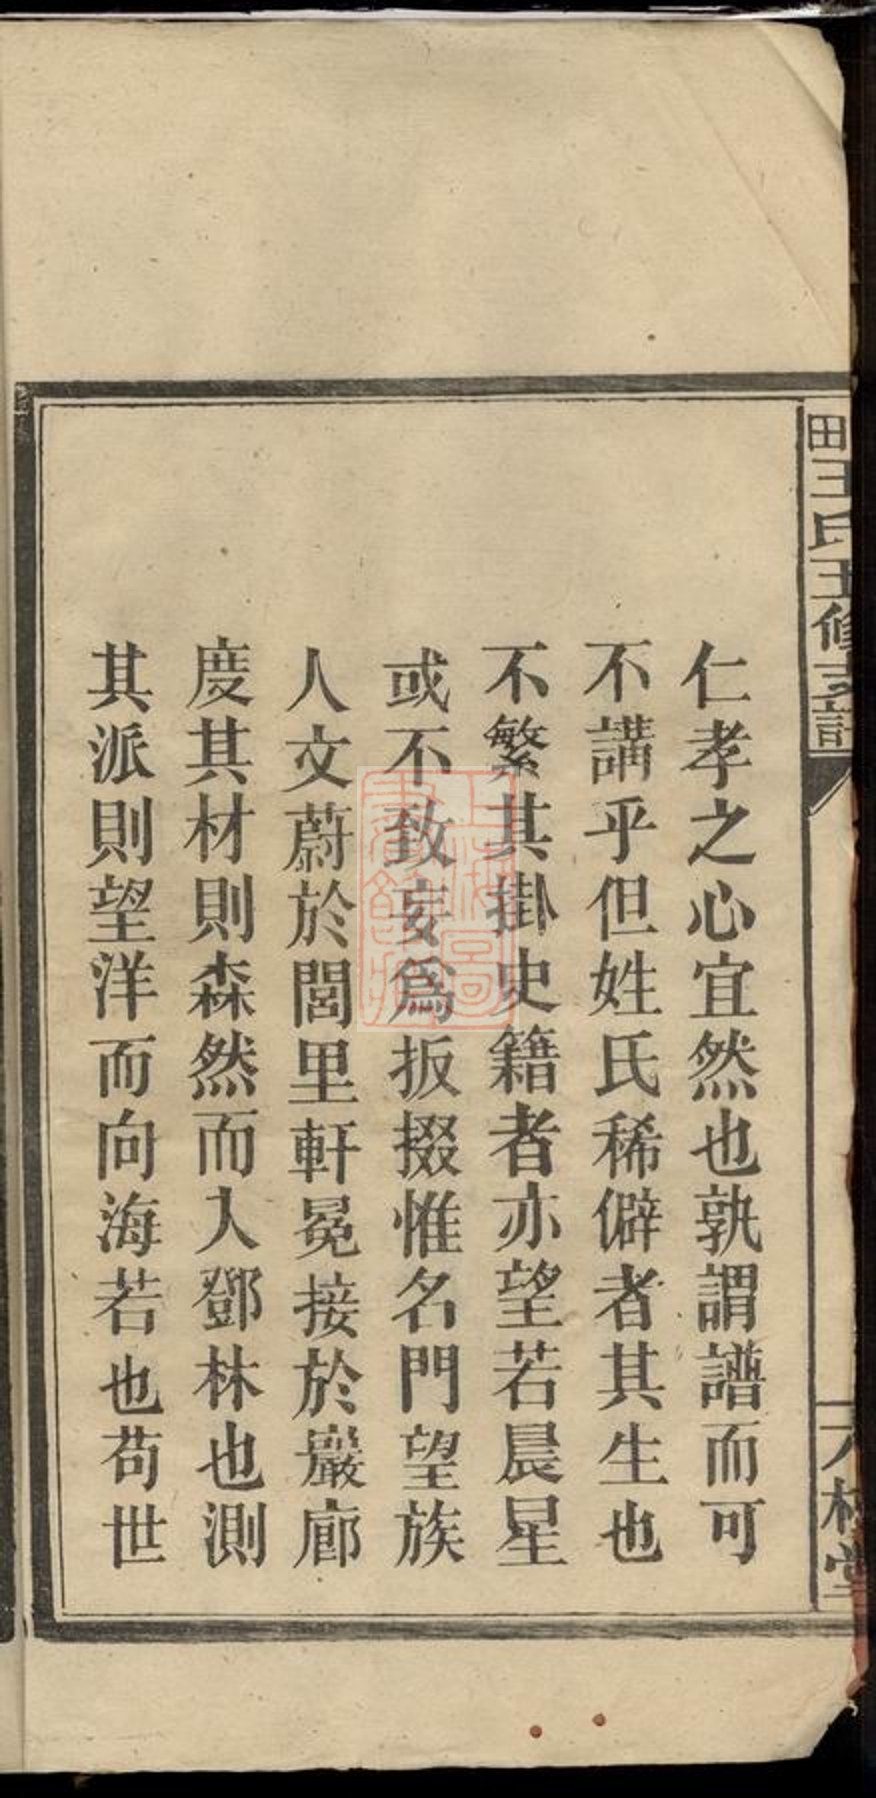 田王氏五修支譜
仁孝之心宜然也孰謂譜而可
不講乎但姓氏稀僻者其生也
不繁其掛史籍者亦望若晨星
或不致妄爲扳掇惟名門望族
人文蔚於閭里軒冕接於巖廊
度其材則森然而入鄧林也測
其派則望洋而向海若也苟世